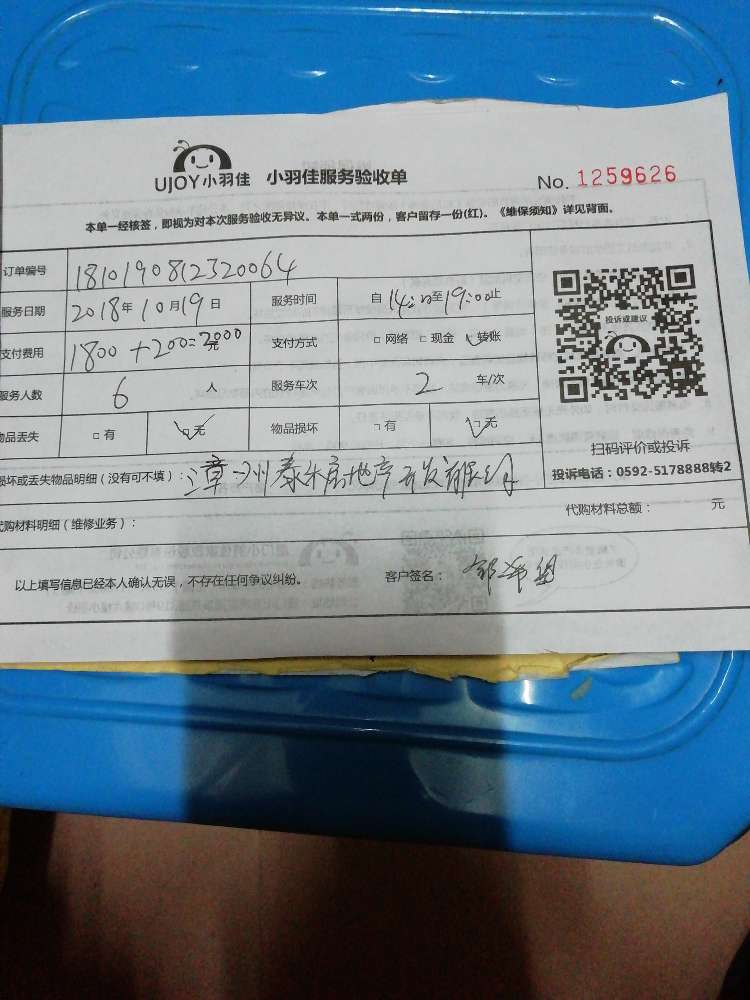 UJOY小羽佳 小羽佳服务验收单 No. 1259626
本单一经核签，即视为对本次服务验收无异议。本单一式两份，客户留存一份(红)。《维保须知》详见背面。
订单编号 1810190812320064
服务日期 2018年10月19日 服务时间 自14:00至19:00止
支付费用 1800+200=2000元 支付方式 □网络 □现金 ☑转账
投诉或建议
服务人数 6 人 服务车次 2 车/次
物品丢失 □有 ☑无 物品损坏 □有 ☑无
扫码评价或投诉
损坏或丢失物品明细（没有可不填）：漳州泰禾房地产开发有限公司
投诉电话：0592-5178888转2
代购材料明细（维修业务）： 代购材料总额： 元
以上填写信息已经本人确认无误，不存在任何争议纠纷。 客户签名：